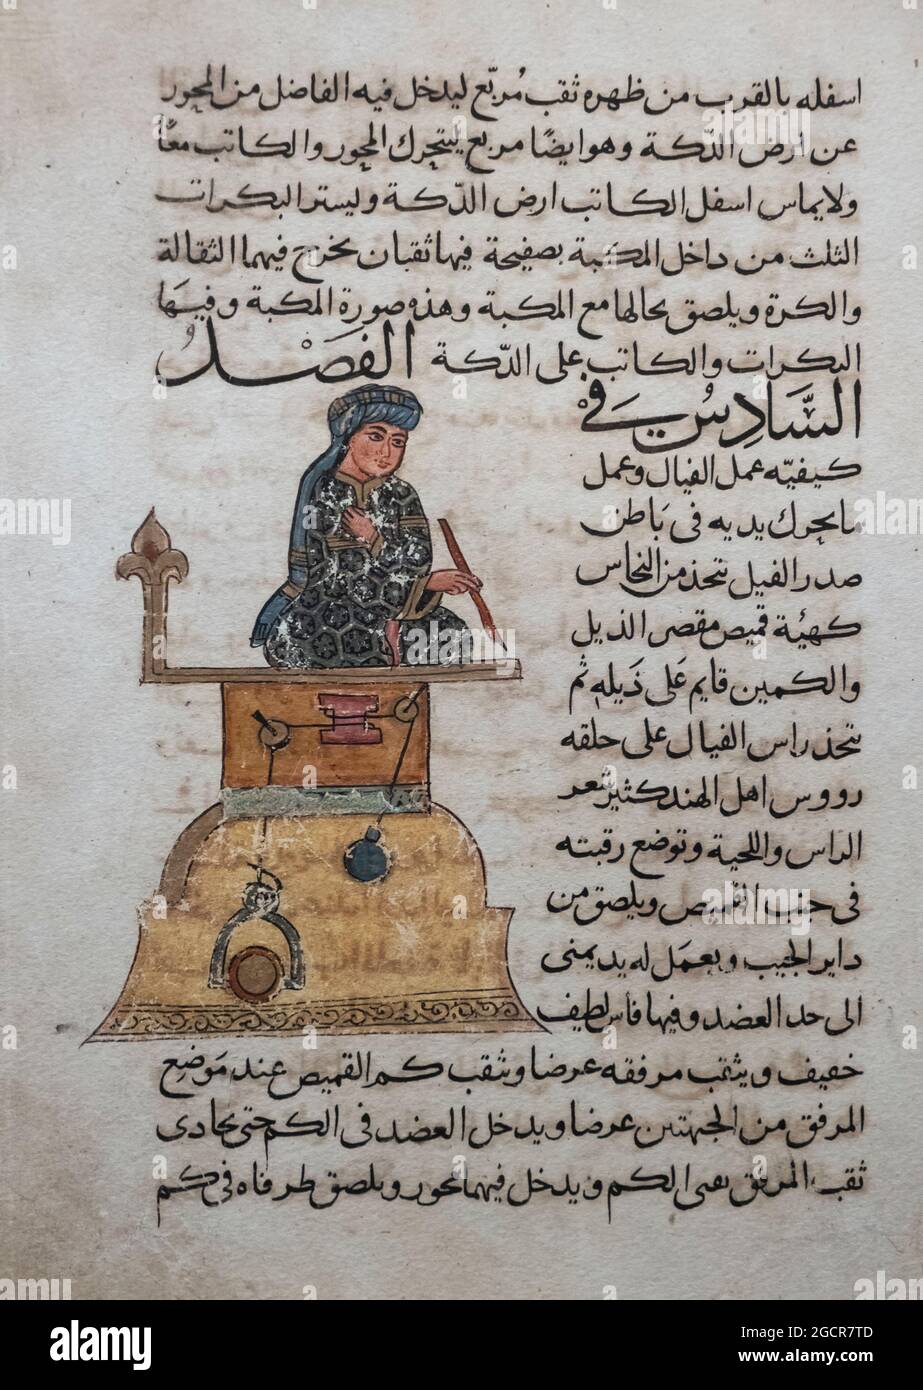 اسفله بالقرب من ظهره ثقب مُربّع ليدخل فيه الفاضل من المحور
عن ارض الدّكة وهو ايضًا مربع ليتحرك المحور والكاتب معًا
ولا يماس اسفل الكاتب ارض الدّكة وليستر البكرات
الثلث من داخل المكبة بصفيحة فيها ثقبان يخرج فيهما الثقالة
والكرة ويلصق بحالها مع المكبة وهذه صورة المكبة وفيها
البكرات والكاتب على الدّكة الفصل
السَّادِس في
كيفيّه عمل الفيال وعمل
ما يحرك يديه في باطن
صدر الفيل يتخذ من النحاس
كهيئة قميص مقصر الذيل
والكمين قايم على ذيله ثم
يتخذ راس الفيال على خلقه
رووس اهل الهند كثير شعر
الراس واللحية وتوضع رقبته
في جيب القميص ويلصق من
داير الجيب ويعمل له يد يمنى
الى حد العضد وفيها فاس لطيف
خفيف ويثقب مرفقه عرضا ويثقب كم القميص عند موضع
المرفق من الجهتين عرضا ويدخل العضد في الكم حتى يحاذى
ثقب المرفق ثقبى الكم ويدخل فيهما محور ويلصق طرفاه في كم
alamy
Image ID: 2GCR7TD
www.alamy.com